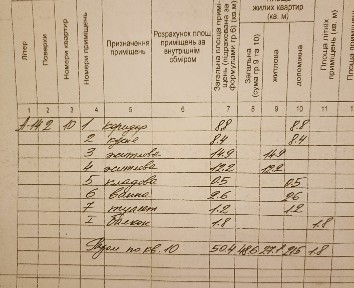 Літер
Поверхи
Номери квартир
Номери приміщень
Призначення приміщень
Розрахунок площ приміщень за внутрішнім обміром
Загальна площа приміщень (підрахована за формулами гр 6) (кв м)
жилих квартир (кв м)
Загальна (сума гр 9 та 10)
житлова
допоміжна
Площа літніх приміщень (кв м)
1 2 3 4 5 6 7 8 9 10 11
2 10 1 коридор 8.8 8.8
2 кухня 8.4 8.4
3 житлова 14.9 14.9
4 житлова 12.2 12.2
5 кладова 0.5 0.5
6 ванна 2.6 2.6
7 туалет 1.2 1.2
I балкон 1.8 1.8
Разом по кв. 10 50.4 48.6 1.8